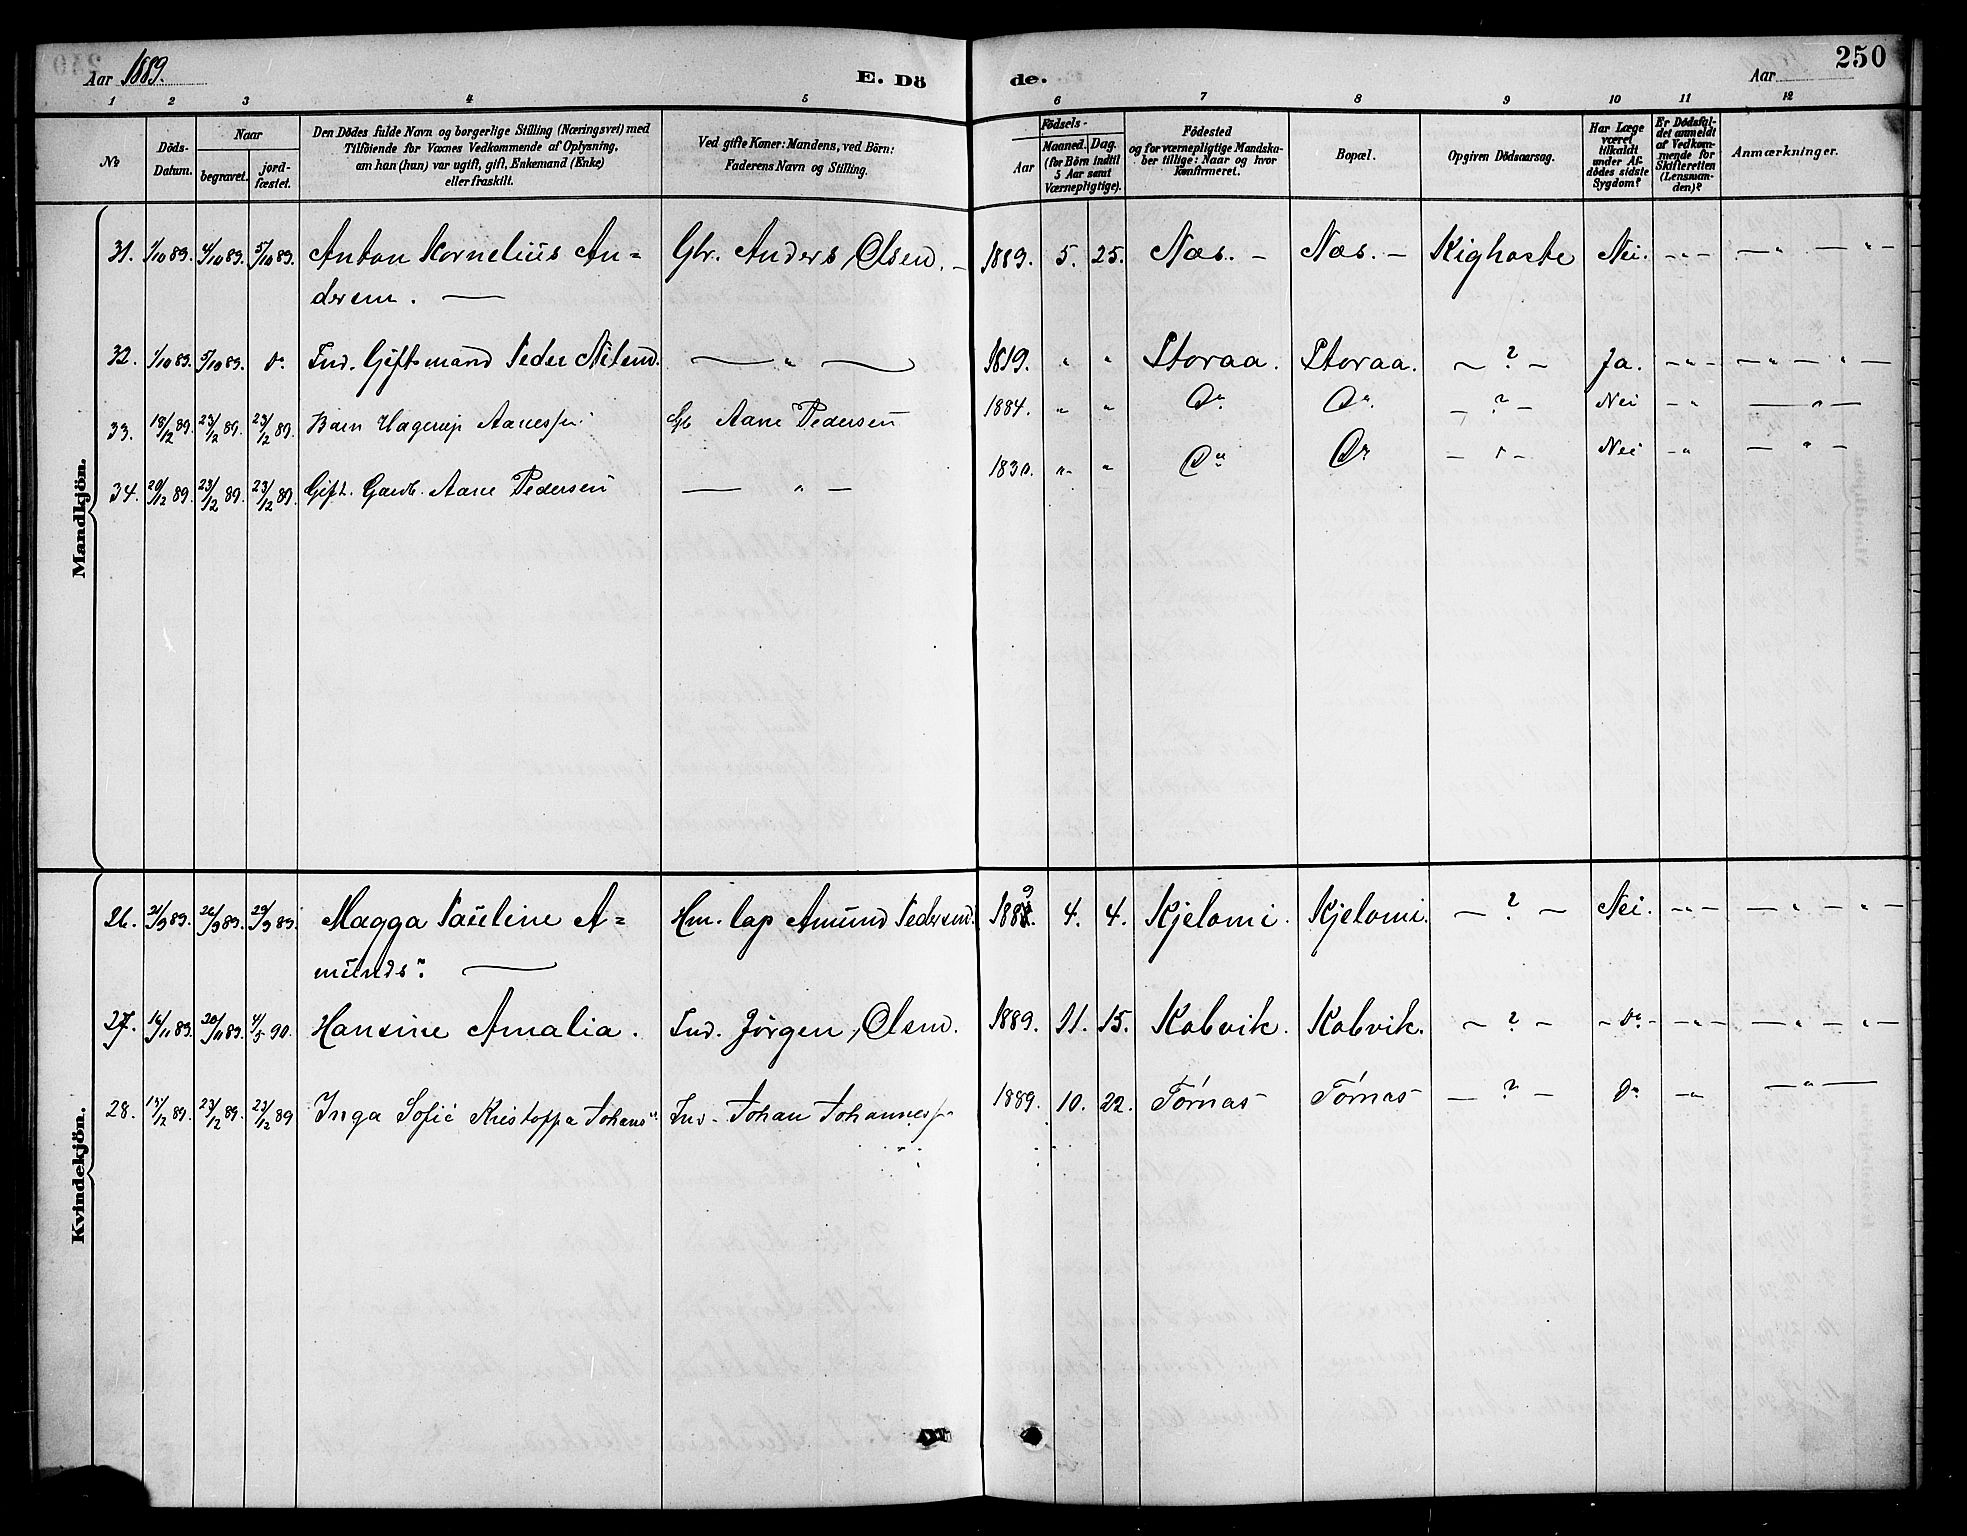 Aar 1889.
E. Dö de.
Aar
250
1 2 3 4 5 6 7 8 9 10 11 12
No
Döds-
Datum.
Naar
begravet.
jord-
fæstet.
Den Dödes fulde Navn og borgerlige Stilling (Næringsvei) med
Tilföiende for Voxnes Vedkommende af Oplysning,
om han (hun) var ugift, gift, Enkemand (Enke)
eller fraskilt.
Ved gifte Koner: Mandens, ved Börn:
Faderens Navn og Stilling.
Födsels-
Aar
Maaned. Dag.
(for Börn indtil
5 Aar samt
Værnepligtige).
Födested
og for værnepligtige Mandska-
ber tillige: Naar og hvor
konfirmeret.
Bopæl.
Opgiven Dödsaarsag.
Har Læge
været
tilkaldt
under Af-
dödes sidste
Sygdom?
Er Dödsfal-
det anmeldt
af Vedkom-
mende for
Skifteretten
(Lensman-
den)?
Anmærkninger.
Mandkjön.
31. 1/10 89. 4/10 89. 5/10 89. Anton Kornelius An= Gbr. Anders Olsen. – 1889. 5. 25. Næs. – Næs. – Kighoste Nei. – „ – – „ – „ –
dersen. —
32. 1/10 89. 5/10 89. do Ind. Giftsmand Peder Nilsen. — „ — 1819. „ „ Storaa. Storaa. – ? – Ja. – „ – – „ – „ –
33. 18/12 89. 23/12 89. 23/12 89. Barn Hagerup Aanesen Gb Aane Pedersen 1884. „ „ Do Do. – ? – Nei – „ – „ –
34. 20/12 89. 23/12 89. 23/12 89. Gift. Gaardb. Aane Pedersen — „ — 1830. „ „ Do Do – „ – Nei – „ – „ –
Kvindekjön.
26. 21/9 89. 26/9 89. 29/9 89. Magga Pauline A= Hm. lap Amund Pedersen. 1889. 4. 4. Kjelomi. Kjelomi. – ? – Nei. – „ – – „ – „ –
munds". —
27. 16/11 89. 20/11 89. 4/5 90. Hansine Amalia. Ind. Jörgen Olsen. 1889. 11. 15. Kobvik. Kobvik. – ? – – do – – „ – – „ – „ –
28. 17/12 89. 23/12 89. 23/12 89 Inga Sofie Kristoffa Johans" Ind. Johan Johanness. 1889. 10. 22. Törnæs Törnæs – ? – do – „ – „ –